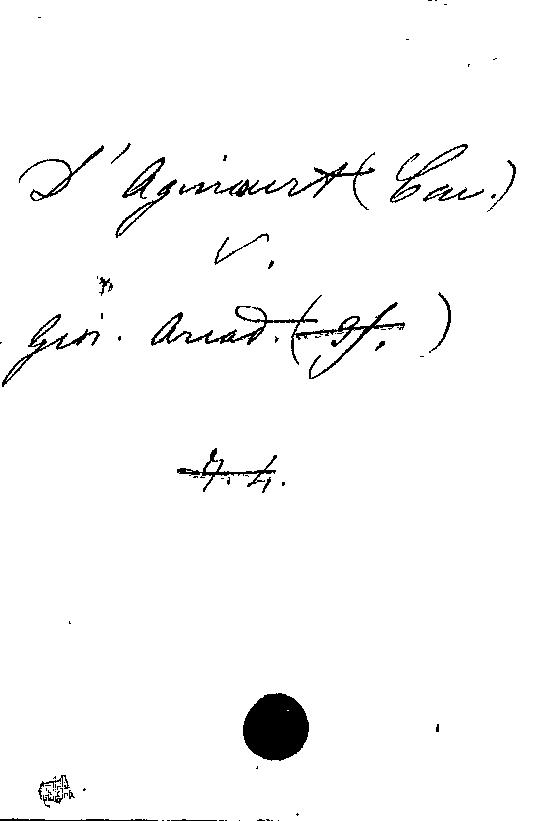 D' Agincourt (Cav.)
V.
Gior. Arcad. ( )